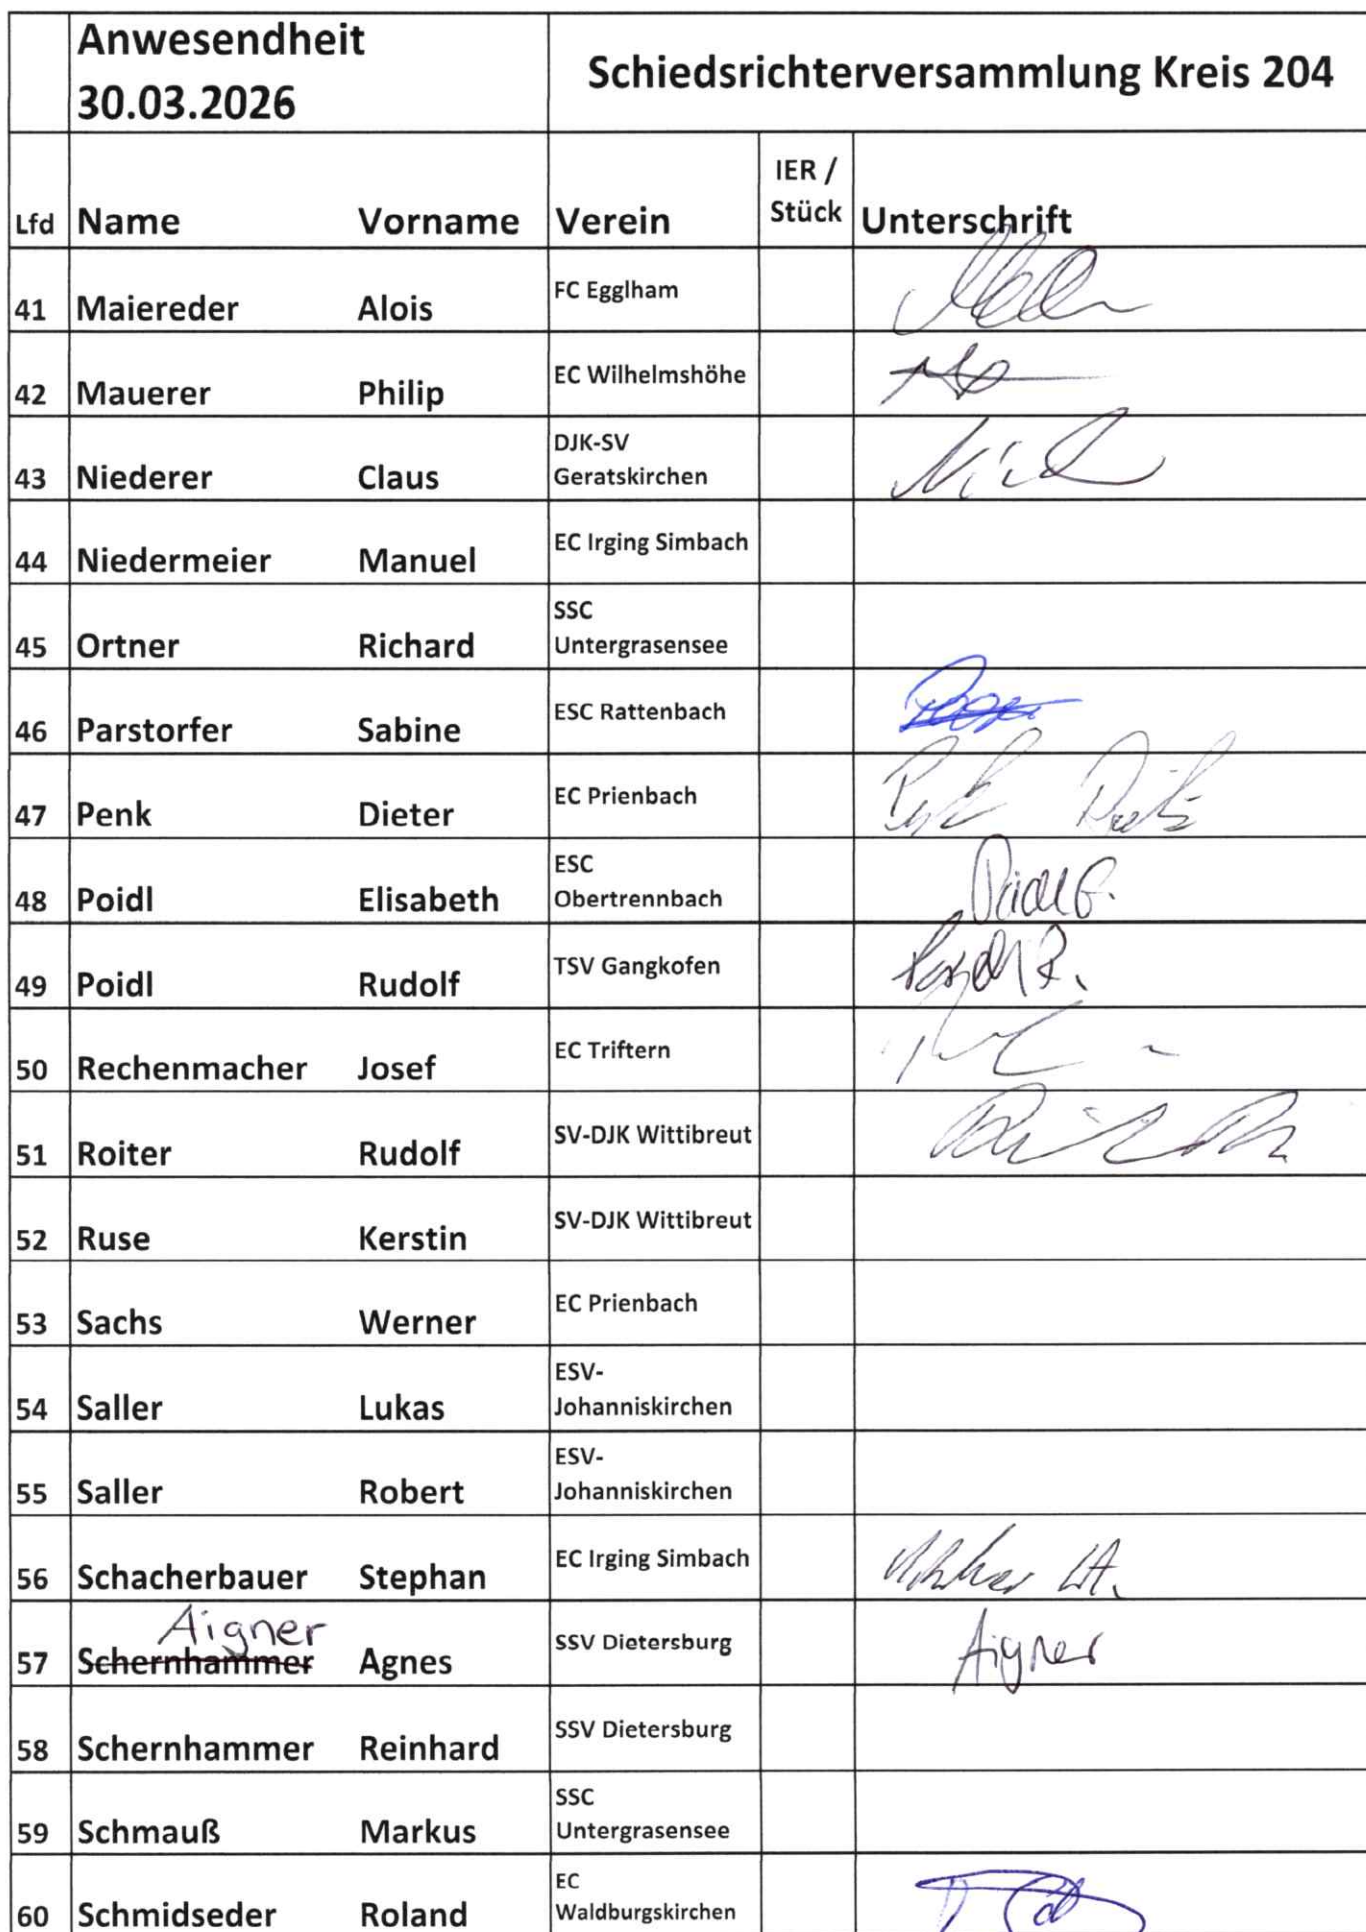 Anwesendheit
30.03.2026
Schiedsrichterversammlung Kreis 204
Lfd Name Vorname Verein IER / Stück Unterschrift
41 Maiereder Alois FC Egglham
42 Mauerer Philip EC Wilhelmshöhe
43 Niederer Claus DJK-SV
Geratskirchen
44 Niedermeier Manuel EC Irging Simbach
45 Ortner Richard SSC
Untergrasensee
46 Parstorfer Sabine ESC Rattenbach
47 Penk Dieter EC Prienbach
48 Poidl Elisabeth ESC
Obertrennbach
Poidl E.
49 Poidl Rudolf TSV Gangkofen Poidl R.
50 Rechenmacher Josef EC Triftern
51 Roiter Rudolf SV-DJK Wittibreut
52 Ruse Kerstin SV-DJK Wittibreut
53 Sachs Werner EC Prienbach
54 Saller Lukas ESV-
Johanniskirchen
55 Saller Robert ESV-
Johanniskirchen
56 Schacherbauer Stephan EC Irging Simbach
Aigner
57 Schernhammer Agnes SSV Dietersburg Aigner
58 Schernhammer Reinhard SSV Dietersburg
59 Schmauß Markus SSC
Untergrasensee
60 Schmidseder Roland EC
Waldburgskirchen